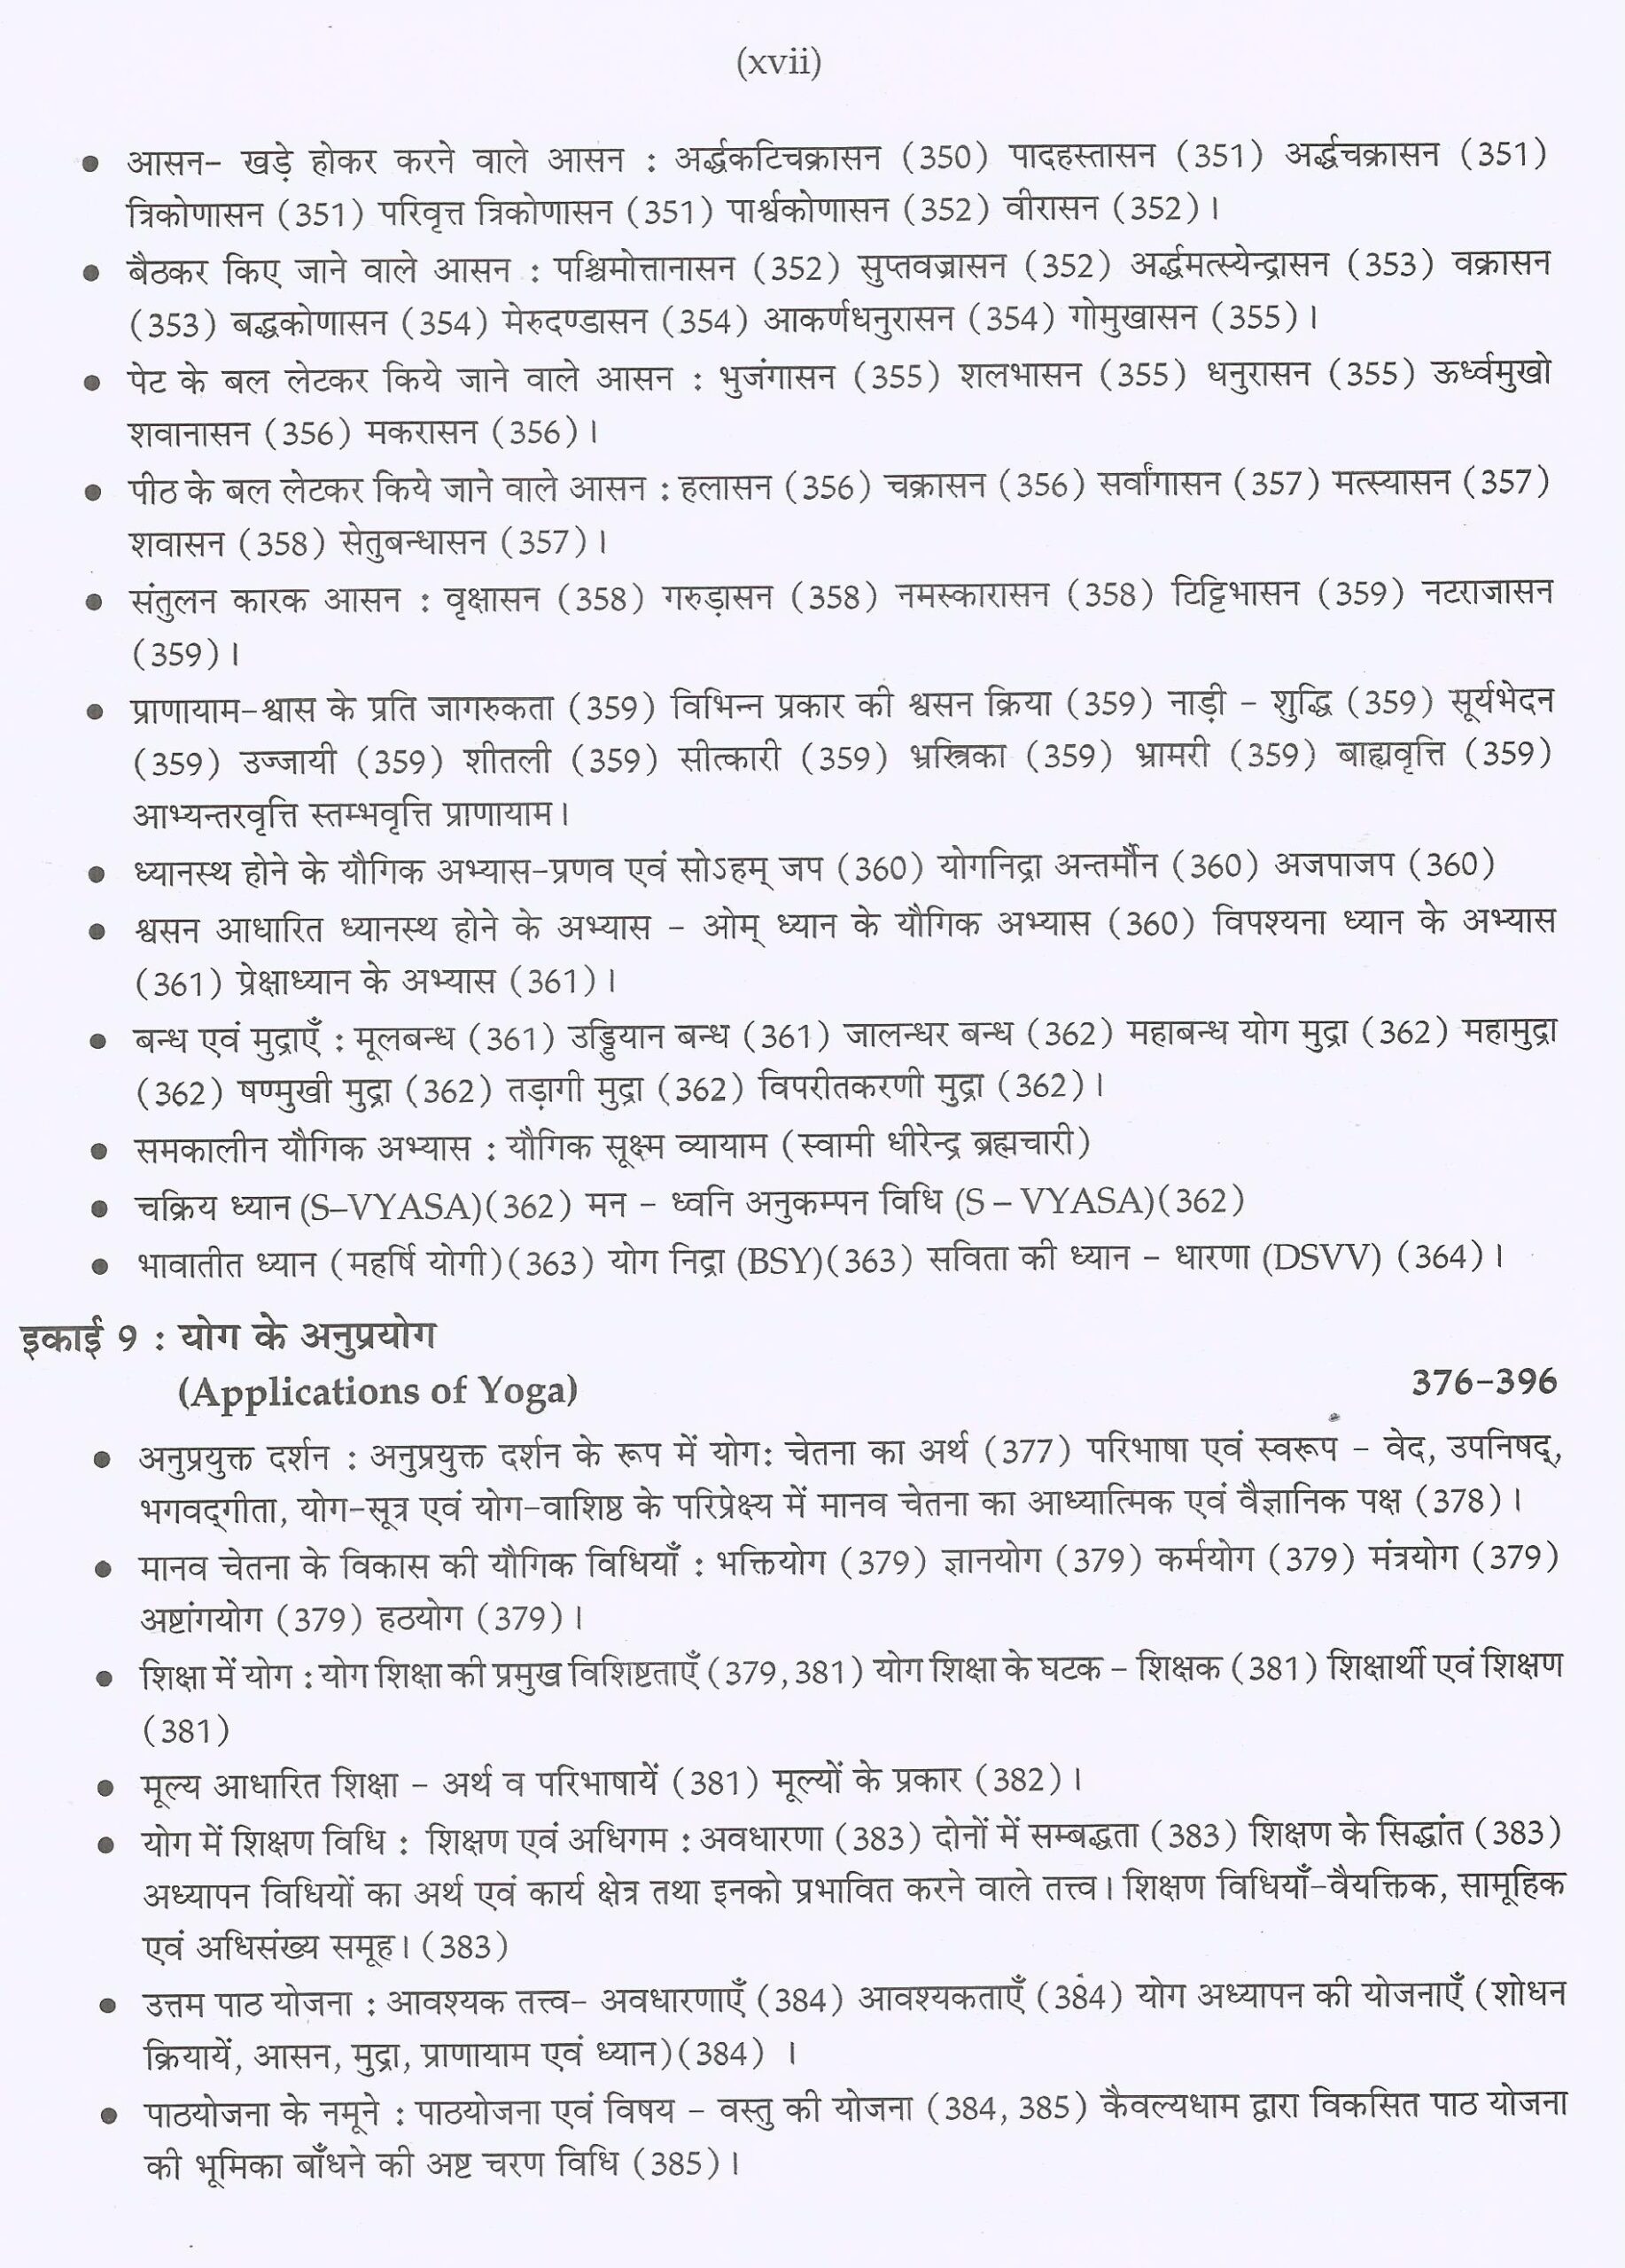 (xvii)
• आसन- खड़े होकर करने वाले आसन : अर्द्धकटिचक्रासन (350) पादहस्तासन (351) अर्द्धचक्रासन (351)
त्रिकोणासन (351) परिवृत्त त्रिकोणासन (351) पार्श्वकोणासन (352) वीरासन (352)।
• बैठकर किए जाने वाले आसन : पश्चिमोत्तानासन (352) सुप्तवज्रासन (352) अर्द्धमत्स्येन्द्रासन (353) वक्रासन
(353) बद्धकोणासन (354) मेरुदण्डासन (354) आकर्णधनुरासन (354) गोमुखासन (355)।
• पेट के बल लेटकर किये जाने वाले आसन : भुजंगासन (355) शलभासन (355) धनुरासन (355) ऊर्ध्वमुखो
शवानासन (356) मकरासन (356)।
• पीठ के बल लेटकर किये जाने वाले आसन : हलासन (356) चक्रासन (356) सर्वांगासन (357) मत्स्यासन (357)
शवासन (358) सेतुबन्धासन (357)।
• संतुलन कारक आसन : वृक्षासन (358) गरुड़ासन (358) नमस्कारासन (358) टिट्टिभासन (359) नटराजासन
(359)।
• प्राणायाम-श्वास के प्रति जागरुकता (359) विभिन्न प्रकार की श्वसन क्रिया (359) नाड़ी - शुद्धि (359) सूर्यभेदन
(359) उज्जायी (359) शीतली (359) सीत्कारी (359) भ्रस्त्रिका (359) भ्रामरी (359) बाह्यवृत्ति (359)
आभ्यन्तरवृत्ति स्तम्भवृत्ति प्राणायाम।
• ध्यानस्थ होने के यौगिक अभ्यास-प्रणव एवं सोऽहम् जप (360) योगनिद्रा अन्तर्मौन (360) अजपाजप (360)
• श्वसन आधारित ध्यानस्थ होने के अभ्यास - ओम् ध्यान के यौगिक अभ्यास (360) विपश्यना ध्यान के अभ्यास
(361) प्रेक्षाध्यान के अभ्यास (361)।
• बन्ध एवं मुद्राएँ : मूलबन्ध (361) उड्डियान बन्ध (361) जालन्धर बन्ध (362) महाबन्ध योग मुद्रा (362) महामुद्रा
(362) षण्मुखी मुद्रा (362) तड़ागी मुद्रा (362) विपरीतकरणी मुद्रा (362)।
• समकालीन यौगिक अभ्यास : यौगिक सूक्ष्म व्यायाम (स्वामी धीरेन्द्र ब्रह्मचारी)
• चक्रिय ध्यान (S–VYASA)(362) मन - ध्वनि अनुकम्पन विधि (S – VYASA)(362)
• भावातीत ध्यान (महर्षि योगी)(363) योग निद्रा (BSY)(363) सविता की ध्यान - धारणा (DSVV) (364)।
इकाई 9 : योग के अनुप्रयोग
(Applications of Yoga) 376-396
• अनुप्रयुक्त दर्शन : अनुप्रयुक्त दर्शन के रूप में योग: चेतना का अर्थ (377) परिभाषा एवं स्वरूप - वेद, उपनिषद्,
भगवद्‌गीता, योग-सूत्र एवं योग-वाशिष्ठ के परिप्रेक्ष्य में मानव चेतना का आध्यात्मिक एवं वैज्ञानिक पक्ष (378)।
• मानव चेतना के विकास की यौगिक विधियाँ : भक्तियोग (379) ज्ञानयोग (379) कर्मयोग (379) मंत्रयोग (379)
अष्टांगयोग (379) हठयोग (379)।
• शिक्षा में योग : योग शिक्षा की प्रमुख विशिष्टताएँ (379,381) योग शिक्षा के घटक - शिक्षक (381) शिक्षार्थी एवं शिक्षण
(381)
• मूल्य आधारित शिक्षा - अर्थ व परिभाषायें (381) मूल्यों के प्रकार (382)।
• योग में शिक्षण विधि : शिक्षण एवं अधिगम : अवधारणा (383) दोनों में सम्बद्धता (383) शिक्षण के सिद्धांत (383)
अध्यापन विधियों का अर्थ एवं कार्य क्षेत्र तथा इनको प्रभावित करने वाले तत्त्व। शिक्षण विधियाँ-वैयक्तिक, सामूहिक
एवं अधिसंख्य समूह। (383)
• उत्तम पाठ योजना : आवश्यक तत्त्व- अवधारणाएँ (384) आवश्यकताएँ (384) योग अध्यापन की योजनाएँ (शोधन
क्रियायें, आसन, मुद्रा, प्राणायाम एवं ध्यान)(384) ।
• पाठयोजना के नमूने : पाठयोजना एवं विषय - वस्तु की योजना (384, 385) कैवल्यधाम द्वारा विकसित पाठ योजना
की भूमिका बाँधने की अष्ट चरण विधि (385)।